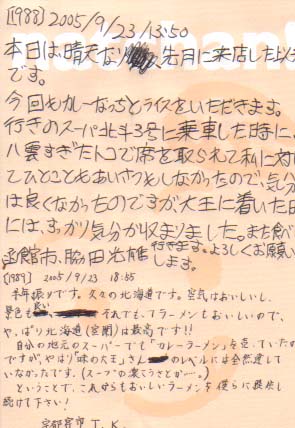 [1988] 2005/9/23 13:50
本日は、晴天なり 先月に来店した以
です。
今回もカレーなっとライスをいただきます。
行きのスーパー北斗3号に乗車した時に、
八雲すぎたトコで席を取られて私に対
てひとこともあいさつもしなかったので、気分
は良くなかったのですが、大王に着いた日
には、すっかり気分か収まりました。また食べ
行きます。よろしくお願い
函館市、脇田 します。
[1989] 2005/9/23 18:55
半年振りです。久々の北海道です。空気はおいしいし、
景色も良い それでも、ラーメンもおいしいので、
やっぱり北海道(室蘭)は最高です!!
自分の地元のスーパーでも「カレーラーメン」を売っていたの
ですが、やはり「味の大王」さん のレベルには全然達して
いなかったです。(スープの濃くうさとか…)
ということで、これからもおいしいラーメンを僕らに提供し
続けて下さい!
宇都宮市 T.K.